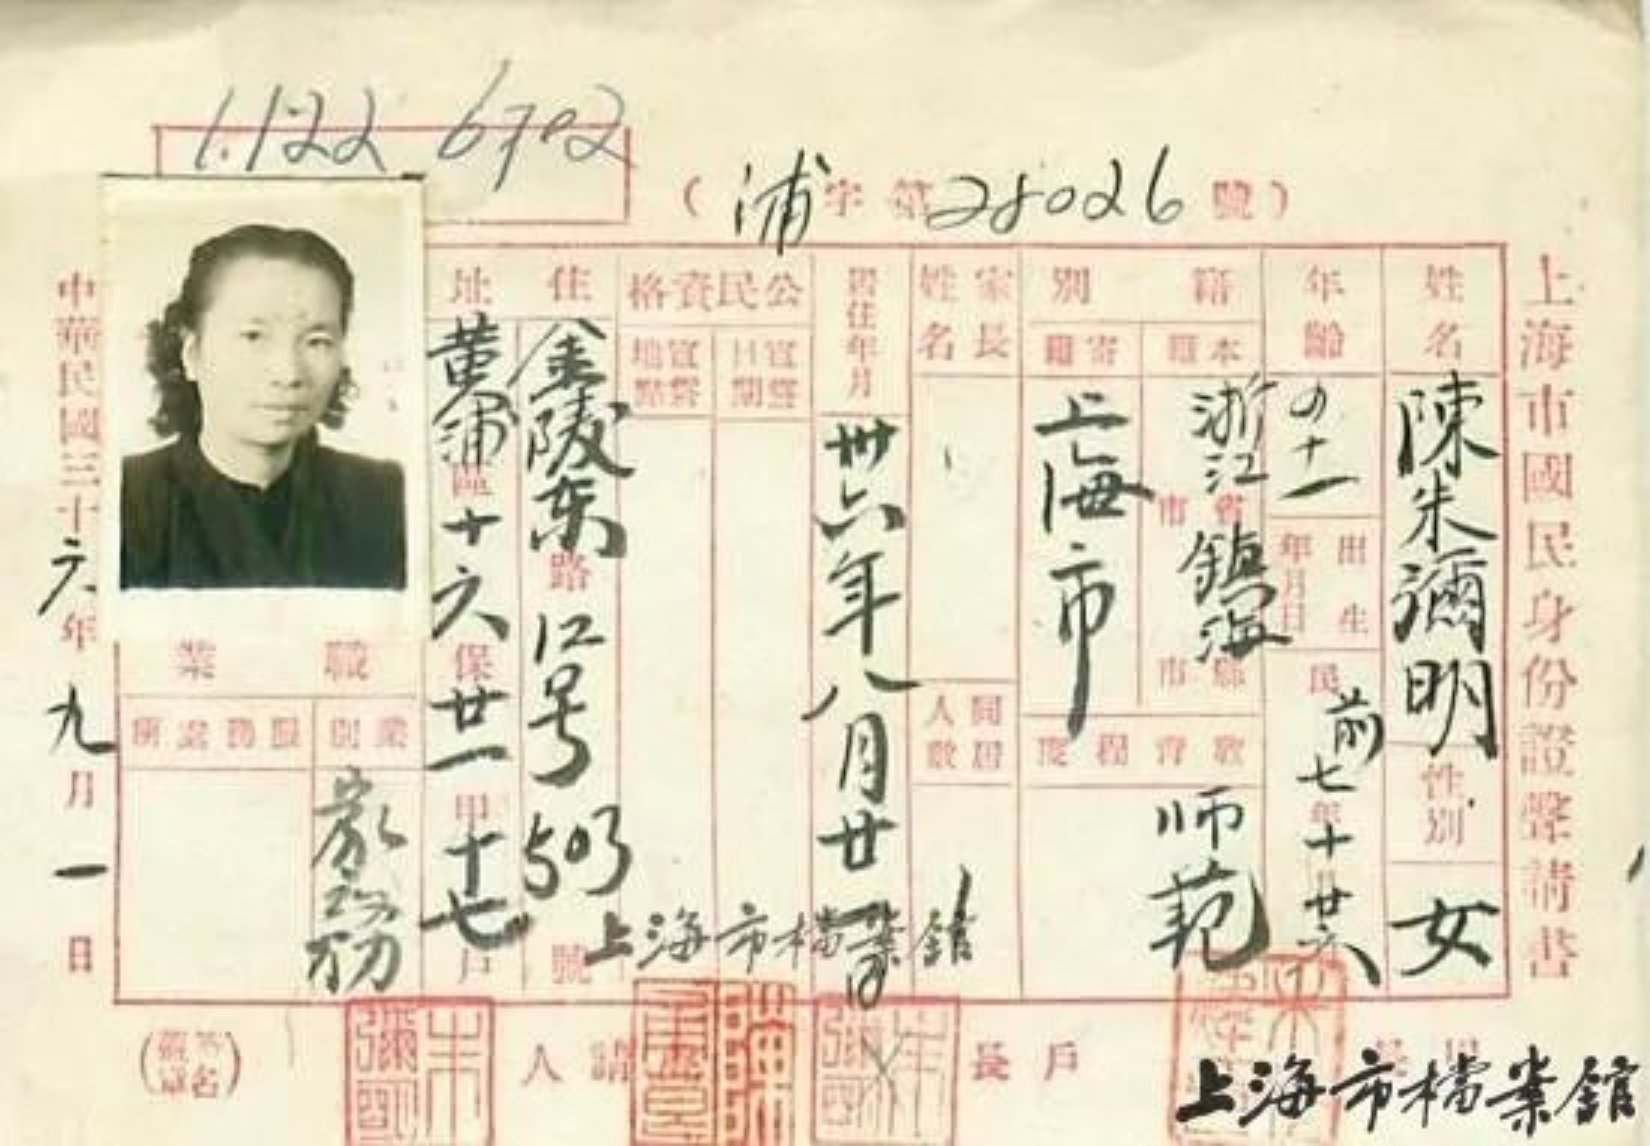 1.122 6702
(浦字第28026號)
上海市國民身份證聲請書
姓名
陳朱彌明
性別
女
年齡
四十一
出生年月日
民前七年十月廿六
籍別
本籍
浙江省市鎮海縣市
寄籍
上海市
教育程度
师范
家長姓名
同居人數
居住年月
卅六年八月廿一日
公民資格
宣誓日期
宣誓地點
住址
金陵东路12号503號
黄浦區十六保廿一甲十七戶
職業
業別
家務
服務處所
中華民國三十六年九月一日
戶長
聲請人
(簽名蓋章)
上海市檔案館
上海市檔案館